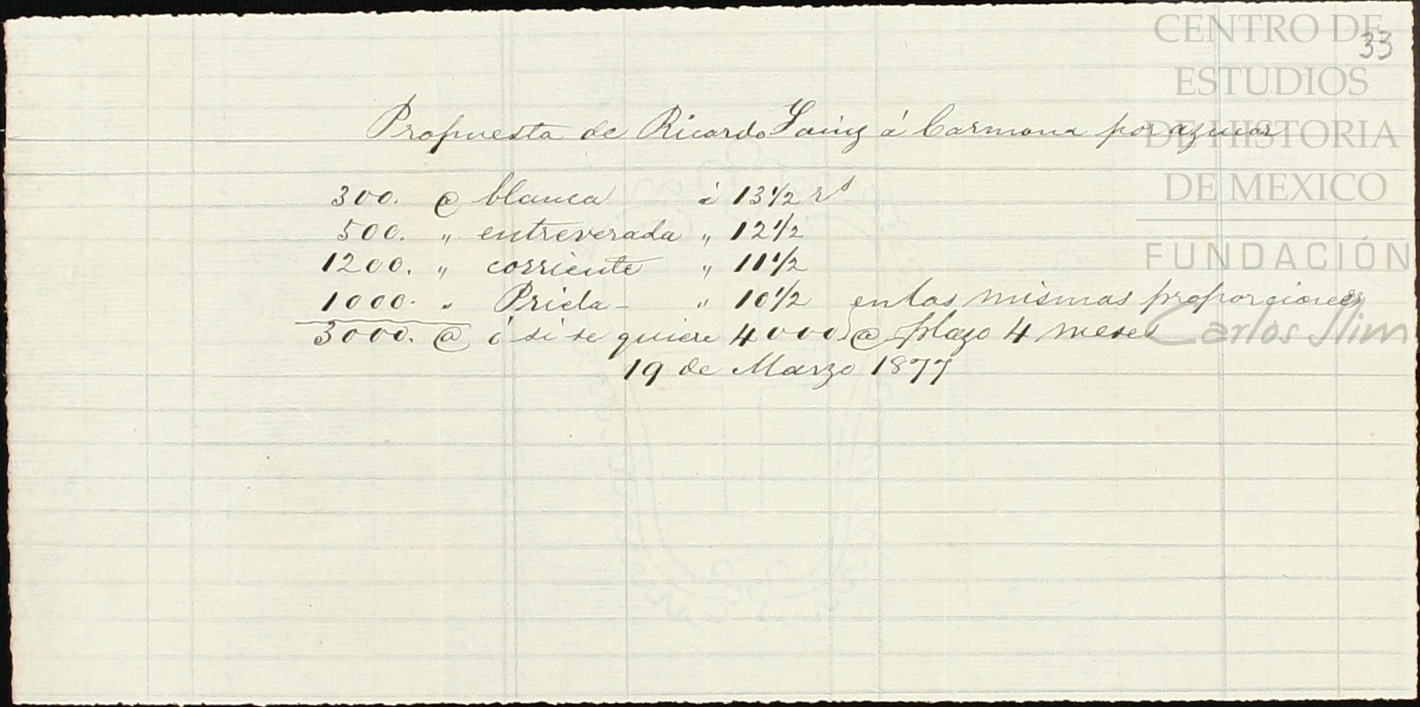 33
CENTRO DE
ESTUDIOS
DE HISTORIA
DE MEXICO
FUNDACIÓN
Carlos Slim
Propuesta de Ricardo Sainz á Carmona por azucar
300. @ blanca á 13 1/2 rs
500. " entreverada " 12 1/2
1200. " corriente " 11 1/2
1000. " Prieta - " 10 1/2 en las mismas proporciones
3000. @ ó si se quiere 4000 @ plazo 4 meses
19 de Marzo 1877